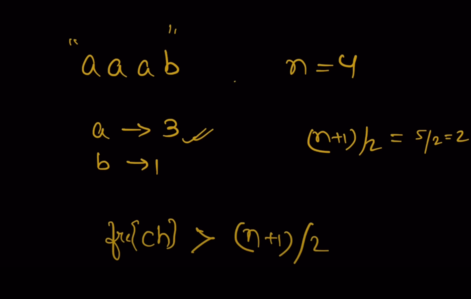 "aaab" n = 4
a → 3 ✓
(n+1)/2 = 5/2 = 2
b → 1
fre[ch] > (n+1)/2